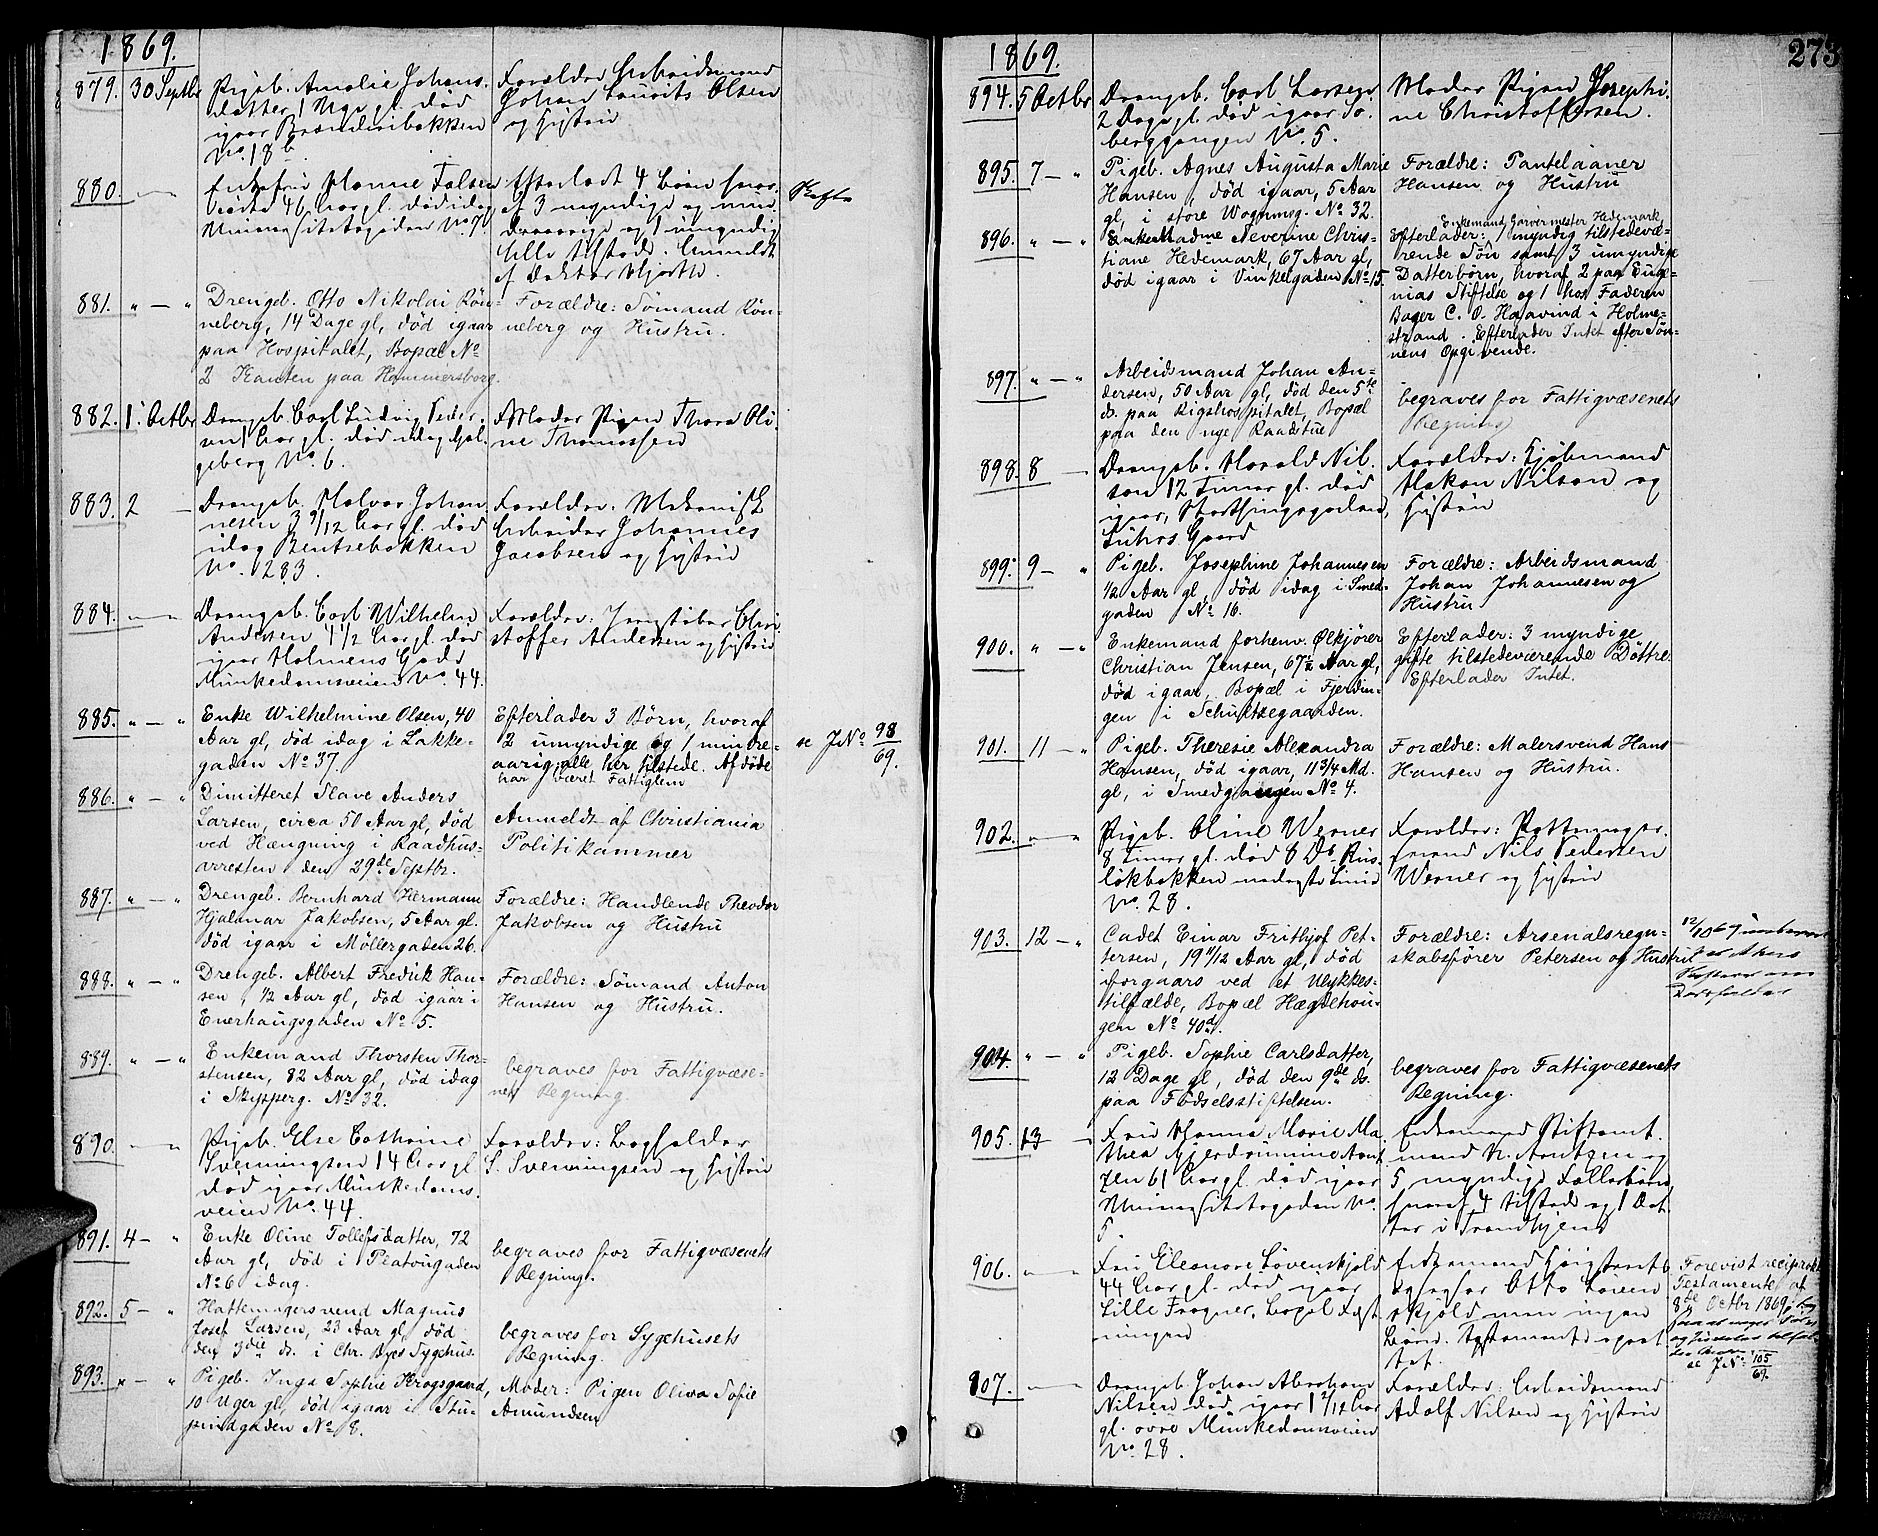 1869.
879. 30 Septbr Pigeb. Amalie Johans-
datter, 1 Uge gl. død
igaar Brænderibakken
No. 18 b.
Forældre Arbeidsmand
Johan Laurits Olsen
og Hustru
880. — " Enkefru Hanne Falsen
46 Aar gl. død idag
Universitetsgaden No. 7.
Efterladt 4 Børn hvor-
af 3 myndige og
1 umyndig
alle tilstede. Anmeldt
af Doktor Hjorth.
Skifte
881. " — " Drengeb. Otto Nikolai Rön-
neberg, 14 Dage gl, död igaar
paa Hospitalet, Bopæl No
2 Kanten paa Hammersborg.
Forældre: Sömand Rön-
neberg og Hustru.
882. 1. Octbr Drengeb. Carl Ludvig Peder-
sen 1 Aar gl. død idag
geberg No. 6.
Moder Pigen Thora Oli-
ne Thomassen
883. 2 — Drengeb. Halvor Johan-
nesen 3 9/12 Aar gl. død
idag Bentsebakken
No. 283.
Forældre: Mekanisk
Arbeider Johannes
Jacobsen og Hustru
884. — " Drengeb. Carl Wilhelm
Andersen 4 1/2 Aar gl. død
igaar Holmens Gade
Munkedamsveien No. 44.
Forældre: Jernstøber Chri-
stoffer Andersen og Hustru
885. " — " Enke Wilhelmine Olsen, 40
Aar gl, död idag i Lakke-
gaden No 37.
Efterlader 3 Børn, hvoraf
2 umyndige og 1 mindre-
aarig alle her tilstede. Afdöde
har været Fattiglem
se J No 98/69.
886. " — " Dimitteret Slave Anders
Larsen, circa 50 Aar gl, död
ved Hængning i Raadhus-
arresten den 29de Septbr.
Anmeldt af Christiania
Politikammer
887. " — " Drengeb. Bernhard Hermann
Hjalmar Jakobsen, 5 Aar gl.
död igaar i Möllergaden 26.
Forældre: Handlende Theodor
Jakobsen og Hustru
888. " — " Drengeb. Albert Fredrik Han-
sen, 1/2 Aar gl, död igaar i
Enerhaugsgaden No 5.
Forældre: Sömand Anton
Hansen og Hustru.
889. " — " Enkemand Thorsten Thor-
stensen, 82 Aar gl, död idag
i Skipperg. No 32.
begraves for Fattigvæse-
nets Regning.
890. — " Pigeb. Else Cathrine
Svenningsen 14 Aar gl
død igaar Munkedams-
veien No. 44.
Forældre: Bogholder
S. Svenningsen og Hustru
891. 4 — " Enke Oline Tollefsdatter, 72
Aar gl, død i Pratougaden
No 6 idag.
begraves for Fattigvæsenets
Regning.
892. 5 — " Hattemagersvend Magnus
Josef Larsen, 23 Aar gl, död
den 3die ds. i Chr. Byes Sygehus.
begraves for Sygehusets
Regning.
893. " — " Pigeb. Inga Sophie Krogsgaard,
10 Uger gl, död igaar i Stu-
pindgaden No 8.
Moder: Pigen Oliva Sofie
Amundsen
273
1869.
894. 5 Octbr Drengeb. Carl Larsen
2 Dage gl. død igaar So-
berggangen No. 5.
Moder Pigen Josephi-
ne Christoffersen.
895. 7 — " Pigeb. Agnes Augusta Marie
Hansen, död igaar, 5 Aar
gl, i store Wognmsg. No 32.
Forældre: Pantelaaner
Hansen og Hustru
896. " — " Enke Madme Severine Chris-
tiane Hedemark, 67 Aar gl,
död igaar i Vinkelgaden No 15.
Enkemand Garvermester Hedemark,
Efterlader: 1 myndig tilstedevæ-
rende Sön samt 3 umyndige
Datterbörn, hvoraf 2 paa Euge-
nias Stiftelse og 1 hos Faderen
Bager C. O. Haavind i Holme-
strand. Efterlader Intet efter Søn-
nens Opgivende.
897. " — " Arbeidsmand Johan An-
dersen, 50 Aar gl, död den 5te
ds. paa Rigshospitalet, Bopæl
paa den nye Raadstue
begraves for Fattigvæsenets
Regning
898. 8 — Drengeb. Harald Nil-
son 12 Timer gl. død
igaar, Storthingsgaden,
Gaard
Forældre: Kjøbmand
Hakon Nilson og
Hustru
899. 9 — " Pigeb. Josephine Johannesen
1/2 Aar gl, död idag i Smed-
gaden No 16.
Forældre: Arbeidsmand
Johan Johannesen og
Hustru
900. " — " Enkemand forhenv. Ølkjører
Christian Jensen, 67 1/2 Aar gl,
död igaar, Bopæl i Fjerdin-
gen i Schultzegaarden.
Efterlader: 3 myndige
gifte tilstedeværende Döttre.
Efterlader Intet.
901. 11 — " Pigeb. Theresie Alexandra
Hansen, död igaar, 11 3/4 Md.
gl, i Smedgangen No 4.
Forældre: Malersvend Hans
Hansen og Hustru.
902. — " Pigeb. Oline Werner
8 Timer gl. død 8 Ds. Rus-
løkbakken nederste Linie
No. 28.
Forældre: Pottemager-
svend Nils Pedersen
Werner og Hustru
903. 12 — " Cadet Einar Frithjof Pet-
tersen, 19 11/12 Aar gl, död
iforgaars ved et Ulykkes-
tilfælde, Bopæl Hægdehou-
gen No 40d.
Forældre: Arsenalsregn-
skabsfører Petersen og Hustru
12/10 69
Akers
om
Dødsfaldet
904. " — " Pigeb. Sophie Carlsdatter,
12 Dage gl, död den 9de ds.
paa Födselsstiftelsen.
begraves for Fattigvæsenets
Regning.
905. 13 — Fru Hanna Marie Ma-
thea Gjerdrumine Arnt-
zen 61 Aar gl. død igaar
Universitetsgaden No.
5.
Enkemand Stiftamt-
mand N. Arntzen og
5 myndige Fællesbørn,
hvoraf 4 tilstede og 1 Dat-
ter i Trondhjem
906. — " Fru Eleonore Løvenskjold
44 Aar gl. død igaar
Lille Frogner, Bopæl Fæst-
ningen
Enkemand Krigskommissær
Otto Løven-
skjold men ingen
Børn. Testamente opret-
tet.
Forevist reciprokt
Testamente af
8de Octbr 1869
se J No 105/69.
907. — " Drengeb. Johan Abraham
Nilsen død igaar 1 2/12 Aar
gl. øvre Munkedamsveien
No. 28.
Forældre: Arbeidsmand
Adolf Nilsen og Hustru